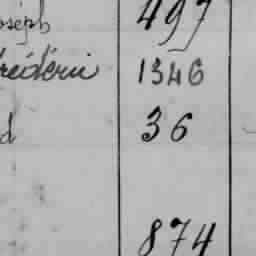 oseph 497
rédéric 1346
d 36
874